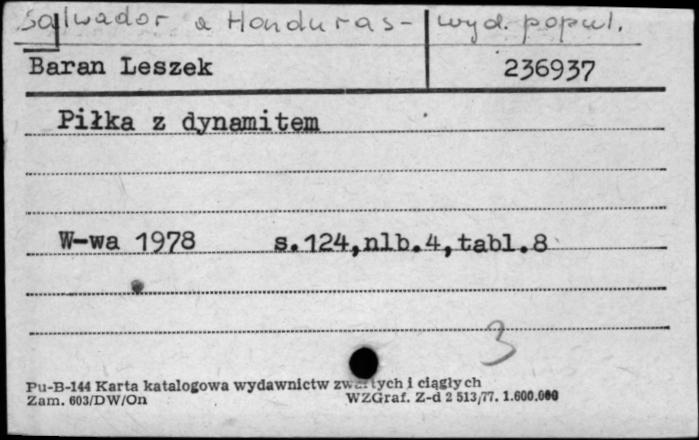 Salwador a Honduras - wyd. popul.
Baran Leszek 236937
Piłka z dynamitem
W-wa 1978 s.124,nlb.4,tabl.8
3
Pu-B-144 Karta katalogowa wydawnictw zwartych i ciągłych
Zam. 603/DW/On WZGraf. Z-d 2 513/77. 1.600.000